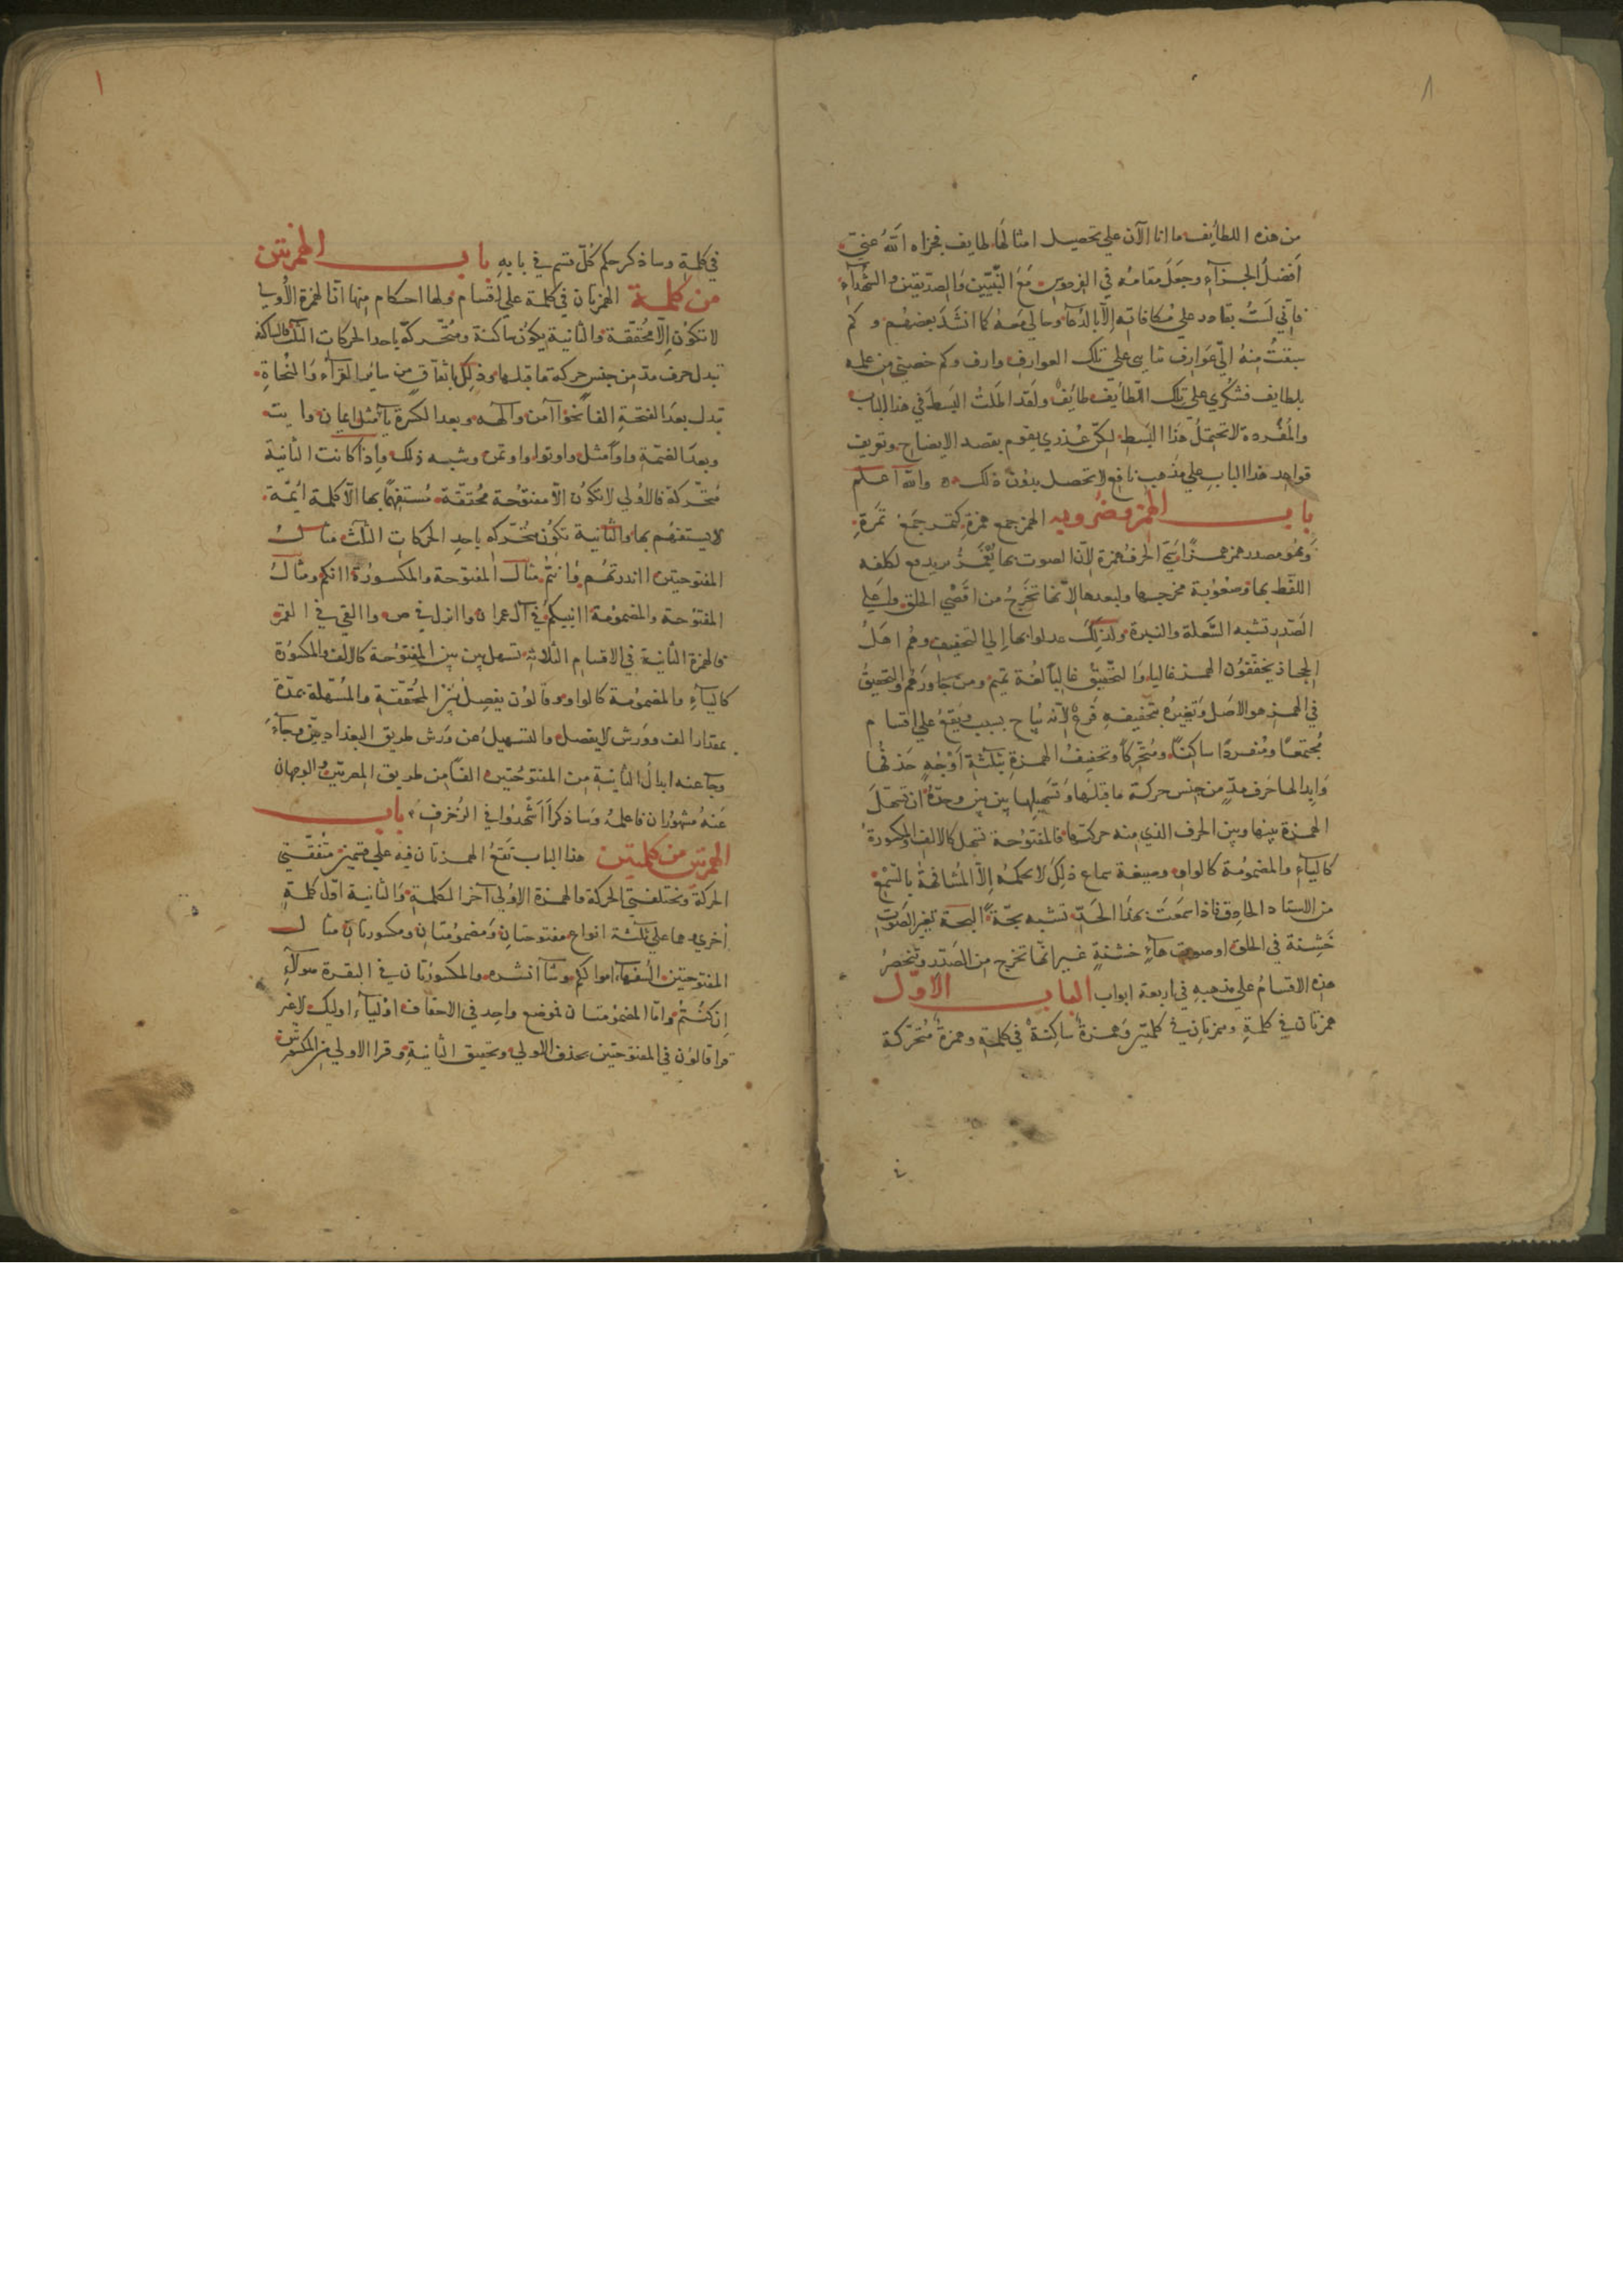 من هذه اللطايف ما انا الآن علي تحصيل امثالها لطايف فجزاه الله عني
أفضل الجزآء وجعل مقامه في الفردوس مع النبيين والصديقين والشهدآء
فاني لست بقادر علي مكافاته إلا بالدعا وحالي معه كما انشد بعضهم وكم
سبقت منه الي عوارف ثنايي علي تلك العوارف وارف وكم خصني من علمه
بلطايف فشكري علي تلك اللطايف طايف ولقد اطلت البسط في هذا الباب
والمفردة لا تحتمل هذا البسط لكن عذري يقوم بقصد الايضاح وتعريف
قواعد هذا الباب علي مذهب نافع لا يحصل بدون ذلك والله اعلم
باب الهمز وضروبه الهمز جمع همزة كتمر جمع تمرة
وهو مصدر همز همزا سمي الحرف همزة لان الصوت بها يهمز يريد دفع لكلفه
اللفظ بها وصعوبة مخرجها ولبعدها لانها تخرج من اقصي الحلق علي
الصدر تشبه السعلة والنبرة ولذلك عدلوا بها إلي التخفيف وهم اهل
الحجاز يخففون الهمز غالبا والتحقيق غالبا لغة تميم ومن جاورهم والتحقيق
في الهمز هو الاصل وتغيره بتخفيفه فرع لانه يباح بسبب ويقع علي اقسام
مجتمعا ومنفردا ساكنا ومتحركا وتخفيف الهمزة بثلثة أوجه حذفها
وابدالها حرف مد من جنس حركة ما قبلها وتسهيلها بين بين وحده ان تسهل
الهمزة بينها وبين الحرف الذي منه حركتها فالمفتوحة تسهل كالالف والمكسورة
كاليآء والمضمومة كالواو وصيغة سماع ذلك لا يحكمه إلا المشافهة بالسمع
من الاستاد الحاذق فاذا سمعت بهذا الحد تشبه بحة البحة تغير الصوت
خشنة في الحلق او صوت هآء خشنة غير انها تخرج من الصدر وتنحصر
هذه الاقسام علي مذهبه في اربعة ابواب الباب الاول
همزتان في كلمة وهمزتان في كلمتين وهمزة ساكنة في كلمة وهمزة متحركة
في كلمة وساذكر حكم كل قسم في بابه باب الهمزتين
من كلمة الهمزتان في كلمة علي اقسام ولها احكام منها أنا الهمزة الأولي
لا تكون إلا محققة والثانية يكون ساكنة ومتحركة باحد الحركات الثلث فالساكنة
تبدل حرف مد من جنس حركة ما قبلها وذلك باتفاق من ساير القرآء والنحاة
تبدل بعد الفتحة الفا نحو آمن وآلهه وبعد الكسرة يآ مثل ايمان وايت
وبعد الضمة واوا مثل واوتوا واوتمن وشبه ذلك واذا كانت الثانية
متحركة فالاولي لا تكون الا مفتوحة محققة مستفهما بها الا كلمة ائمة
لا يستفهم بها والثانية تكون متحركه باحد الحركات الثلث مثال
المفتوحتين اانذرتهم وءانتم مثال المفتوحة والمكسورة اانكم ومثال
المفتوحة والمضمومة اانبيكم في آل عمران واانزل في ص واالقي في القمر
فالهمزة الثانية في الاقسام الثلاثه تسهل بين بين المفتوحة كالالف والمكسورة
كاليآء والمضمومة كالواو وقالون يفصل بين المحققة والمسهلة بمدة
بمقدار الف وورش لا يفصل والتسهيل عن ورش طريق البغداديين وجآء
وجآ عنه ابدال الثانية من المفتوحتين الفا من طريق المصريين والوجهان
عنه مشهوران فاعلمه وساذكر أأشهدوا في الزخرف باب
الهمزتين من كلمتين هذا الباب تقع الهمزتان فيه علي قسمين متفقتي
الحركة ومختلفتي الحركة فالهمزة الاولي آخر الكلمة والثانية اول كلمة
أخري وهما علي ثلثة انواع مفتوحتان ومضمومتان ومكسورتان مثال
المفتوحتين السفهآء اموالكم وشآ انشره والمكسورتان في البقرة هولآء
إن كنتم واما المضمومتان فموضع واحد في الاحقاف اوليآء اوليك لا غير
قرا قالون في المفتوحتين بحذف الاولي وتحقيق الثانية وقرا الاولي من المكسورتين